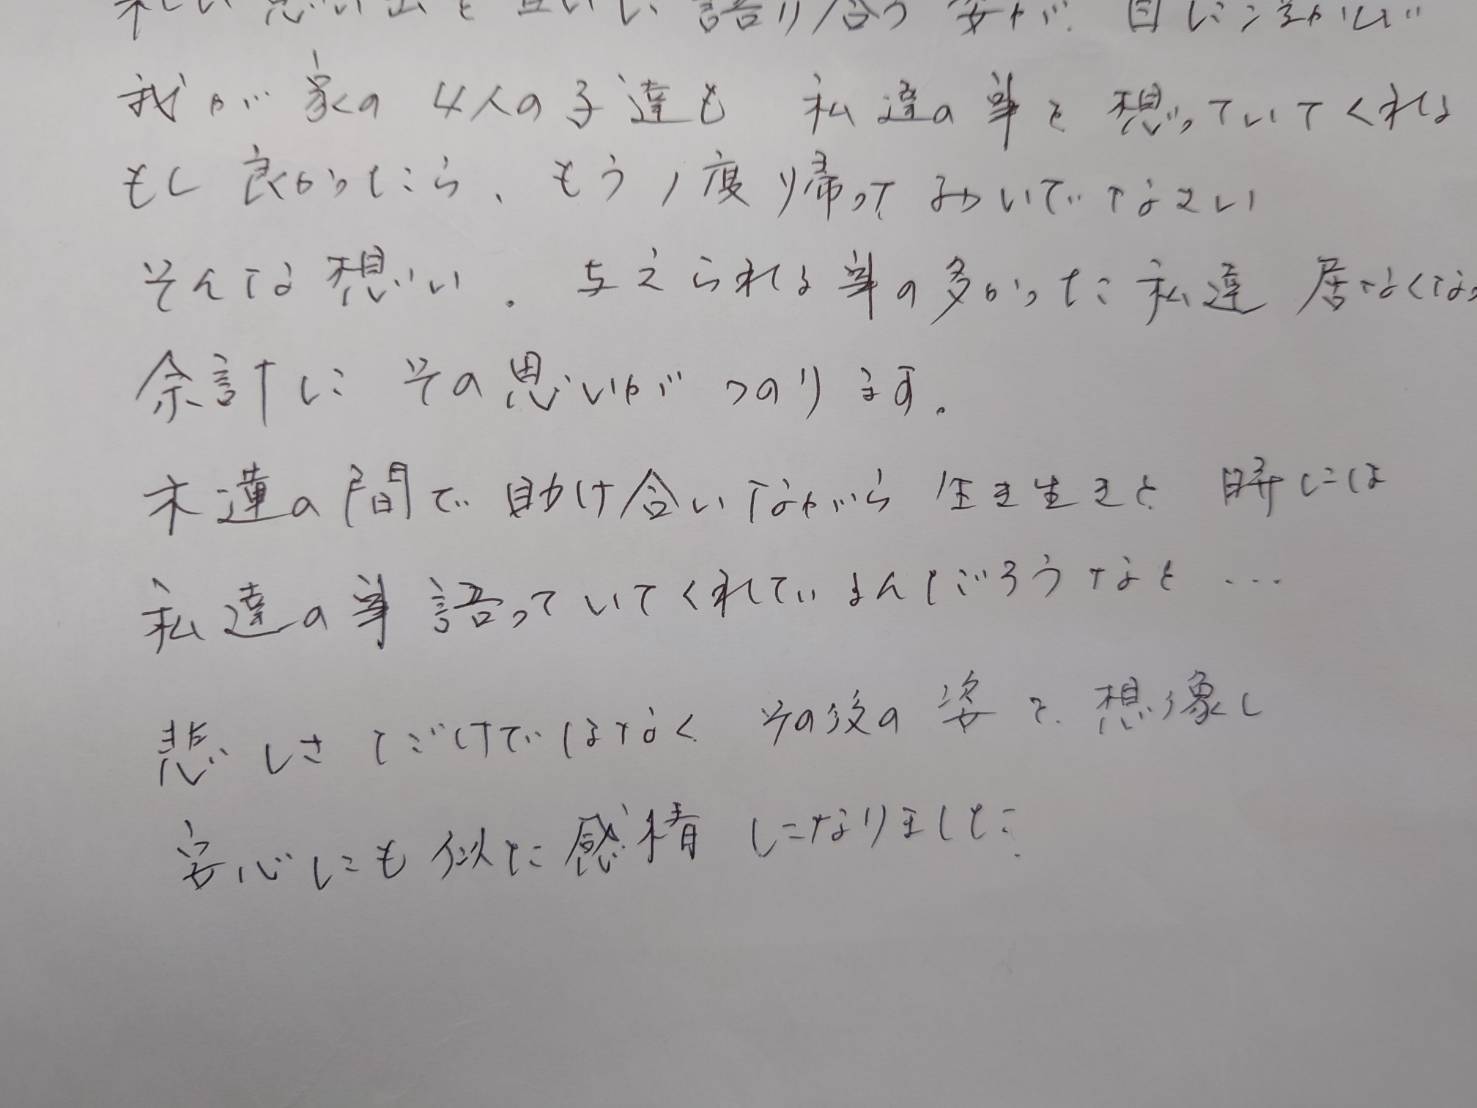 思い出を互いに語り合う姿が 目に浮かび
我が家の4人の子達も 私達の事を 想っていてくれる
もし良かったら、もう1度帰っておいでなさい
そんな想い。与えられる事の多かった私達 居なくなっ
余計に その思いが つのります。
木蓮の間で 助け合いながら 生き生きと 時には
私達の事 語っていてくれているんだろうなと …
悲しさだけではなく その後の 姿を 想像し
安心にも似た 感情 になりました